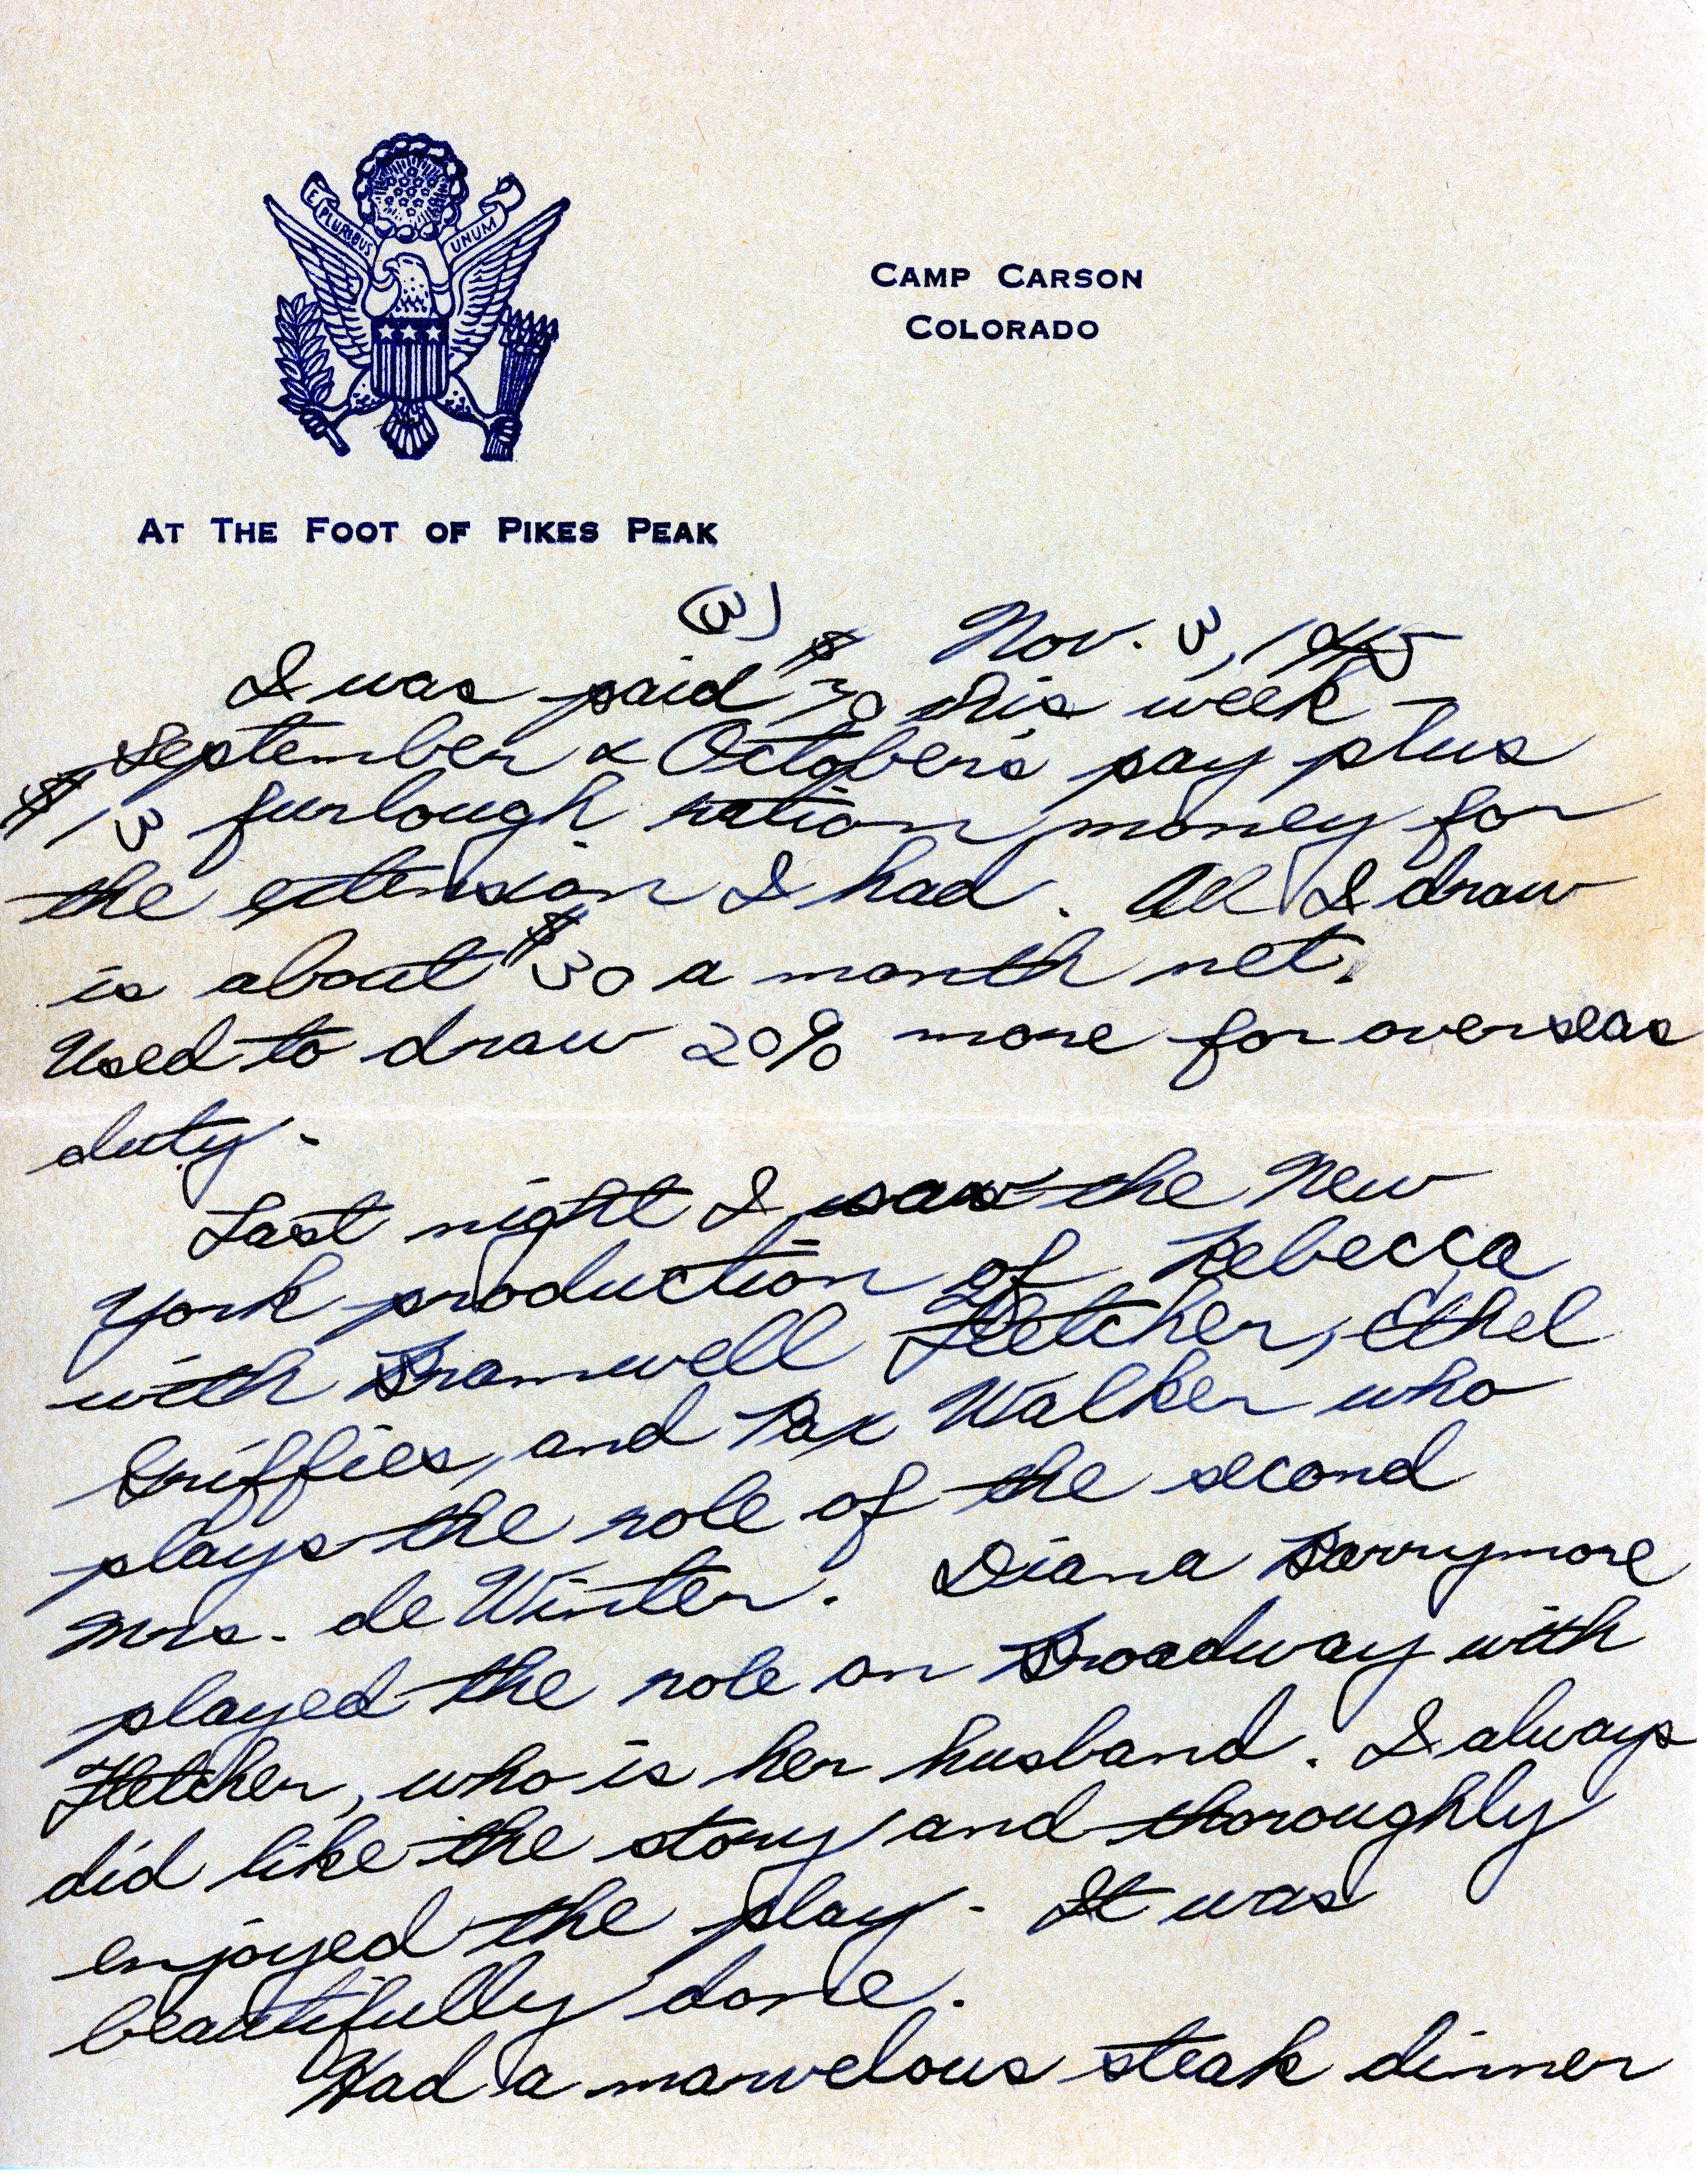 E PLURIBUS UNUM
CAMP CARSON
COLORADO
AT THE FOOT OF PIKES PEAK
(3)
Nov. 3, 1945
I was paid $70 this week -
September & October's pay plus
$13 furlough ration money for
the extension I had. All I draw
is about $30 a month net.
Used to draw 20% more for overseas
duty.
Last night I saw the New
York production of Rebecca
with Bramwell Fletcher, Ethel
Griffies, and Pax Walker who
plays the role of the second
Mrs. de Winter. Diana Barrymore
played the role on Broadway with
Fletcher, who is her husband. I always
did like the story and thoroughly
enjoyed the play. It was
beautifully done.
Had a marvelous steak dinner